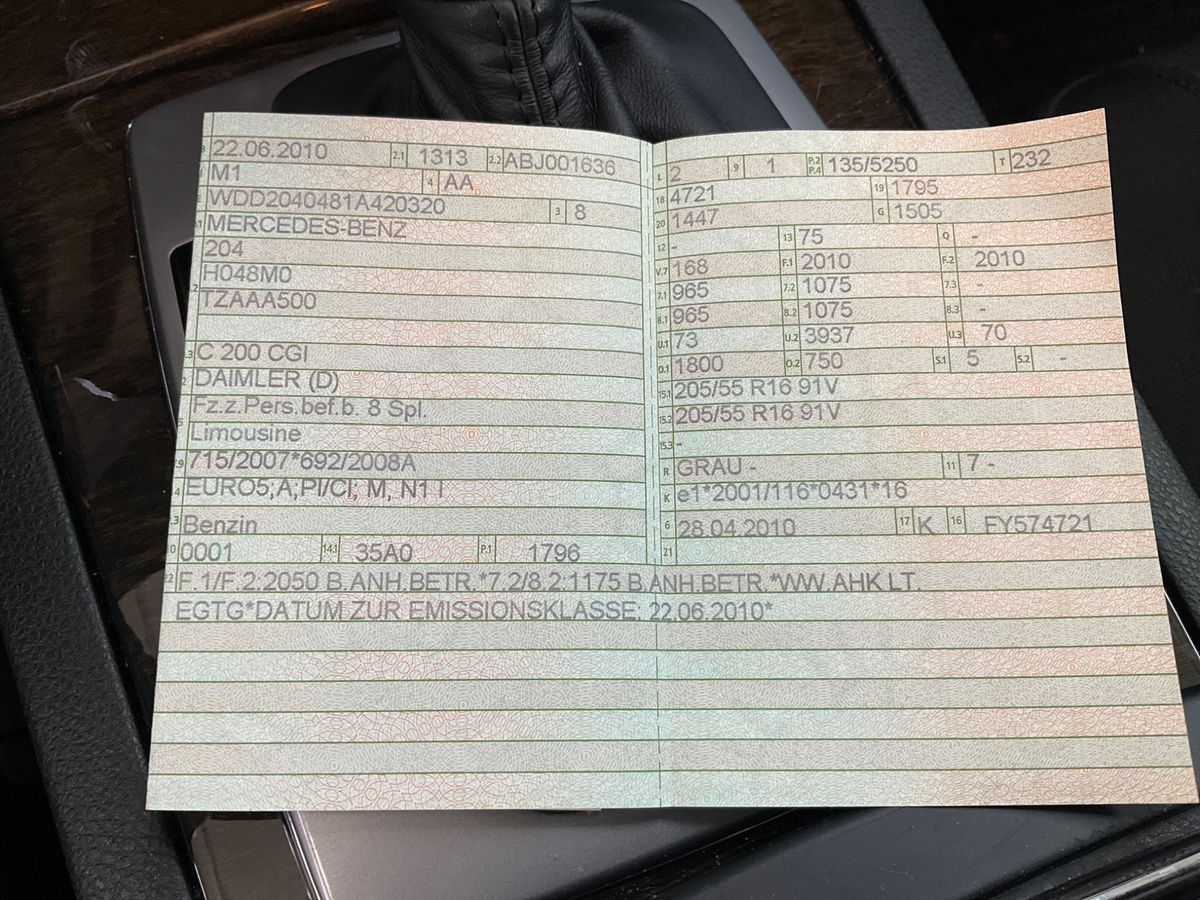 22.06.2010 2.1 1313 2.2 ABJ001636
M1 4 AA
WDD2040481A420320 3 8
MERCEDES-BENZ
204
H048M0
TZAAA500
C 200 CGI
DAIMLER (D)
Fz.z.Pers.bef.b. 8 Spl.
Limousine
715/2007*692/2008A
EURO5;A;PI/CI; M, N1 I
Benzin
0001 14.1 35A0 P.1 1796
L 2 9 1 P.2 P.4 135/5250 T 232
18 4721 19 1795
20 1447 G 1505
12 - 13 75 Q -
V.7 168 F.1 2010 F.2 2010
7.1 965 7.2 1075 7.3 -
8.1 965 8.2 1075 8.3 -
U.1 73 U.2 3937 U.3 70
O.1 1800 O.2 750 S.1 5 S.2 -
15.1 205/55 R16 91V
15.2 205/55 R16 91V
15.3 -
R GRAU - 11 7 -
K e1*2001/116*0431*16
6 28.04.2010 17 K 16 FY574721
21
22 F.1/F.2:2050 B.ANH.BETR.*7.2/8.2:1175 B.ANH.BETR.*WW.AHK LT.
EGTG*DATUM ZUR EMISSIONSKLASSE: 22.06.2010*